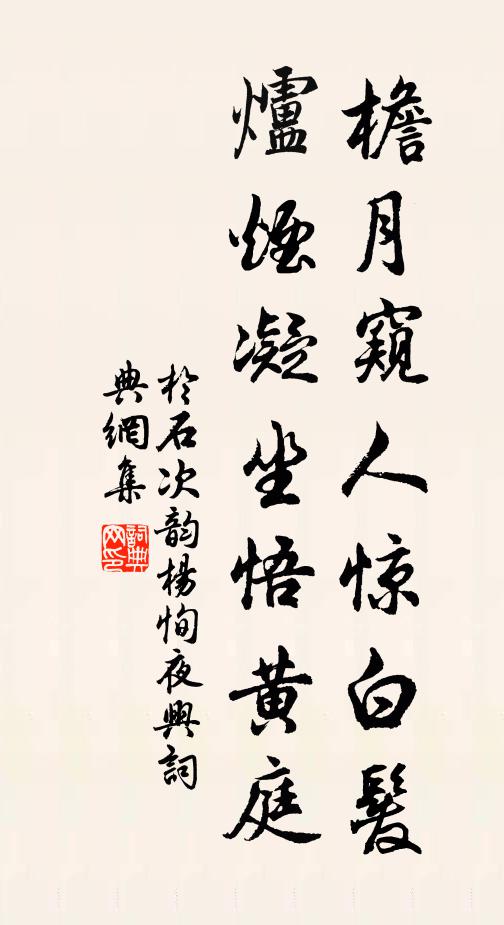 檐月窺人惊白髮
爐煙凝坐悟黄庭
於石次韵楊恂夜興詞
典網集
詞典
网印